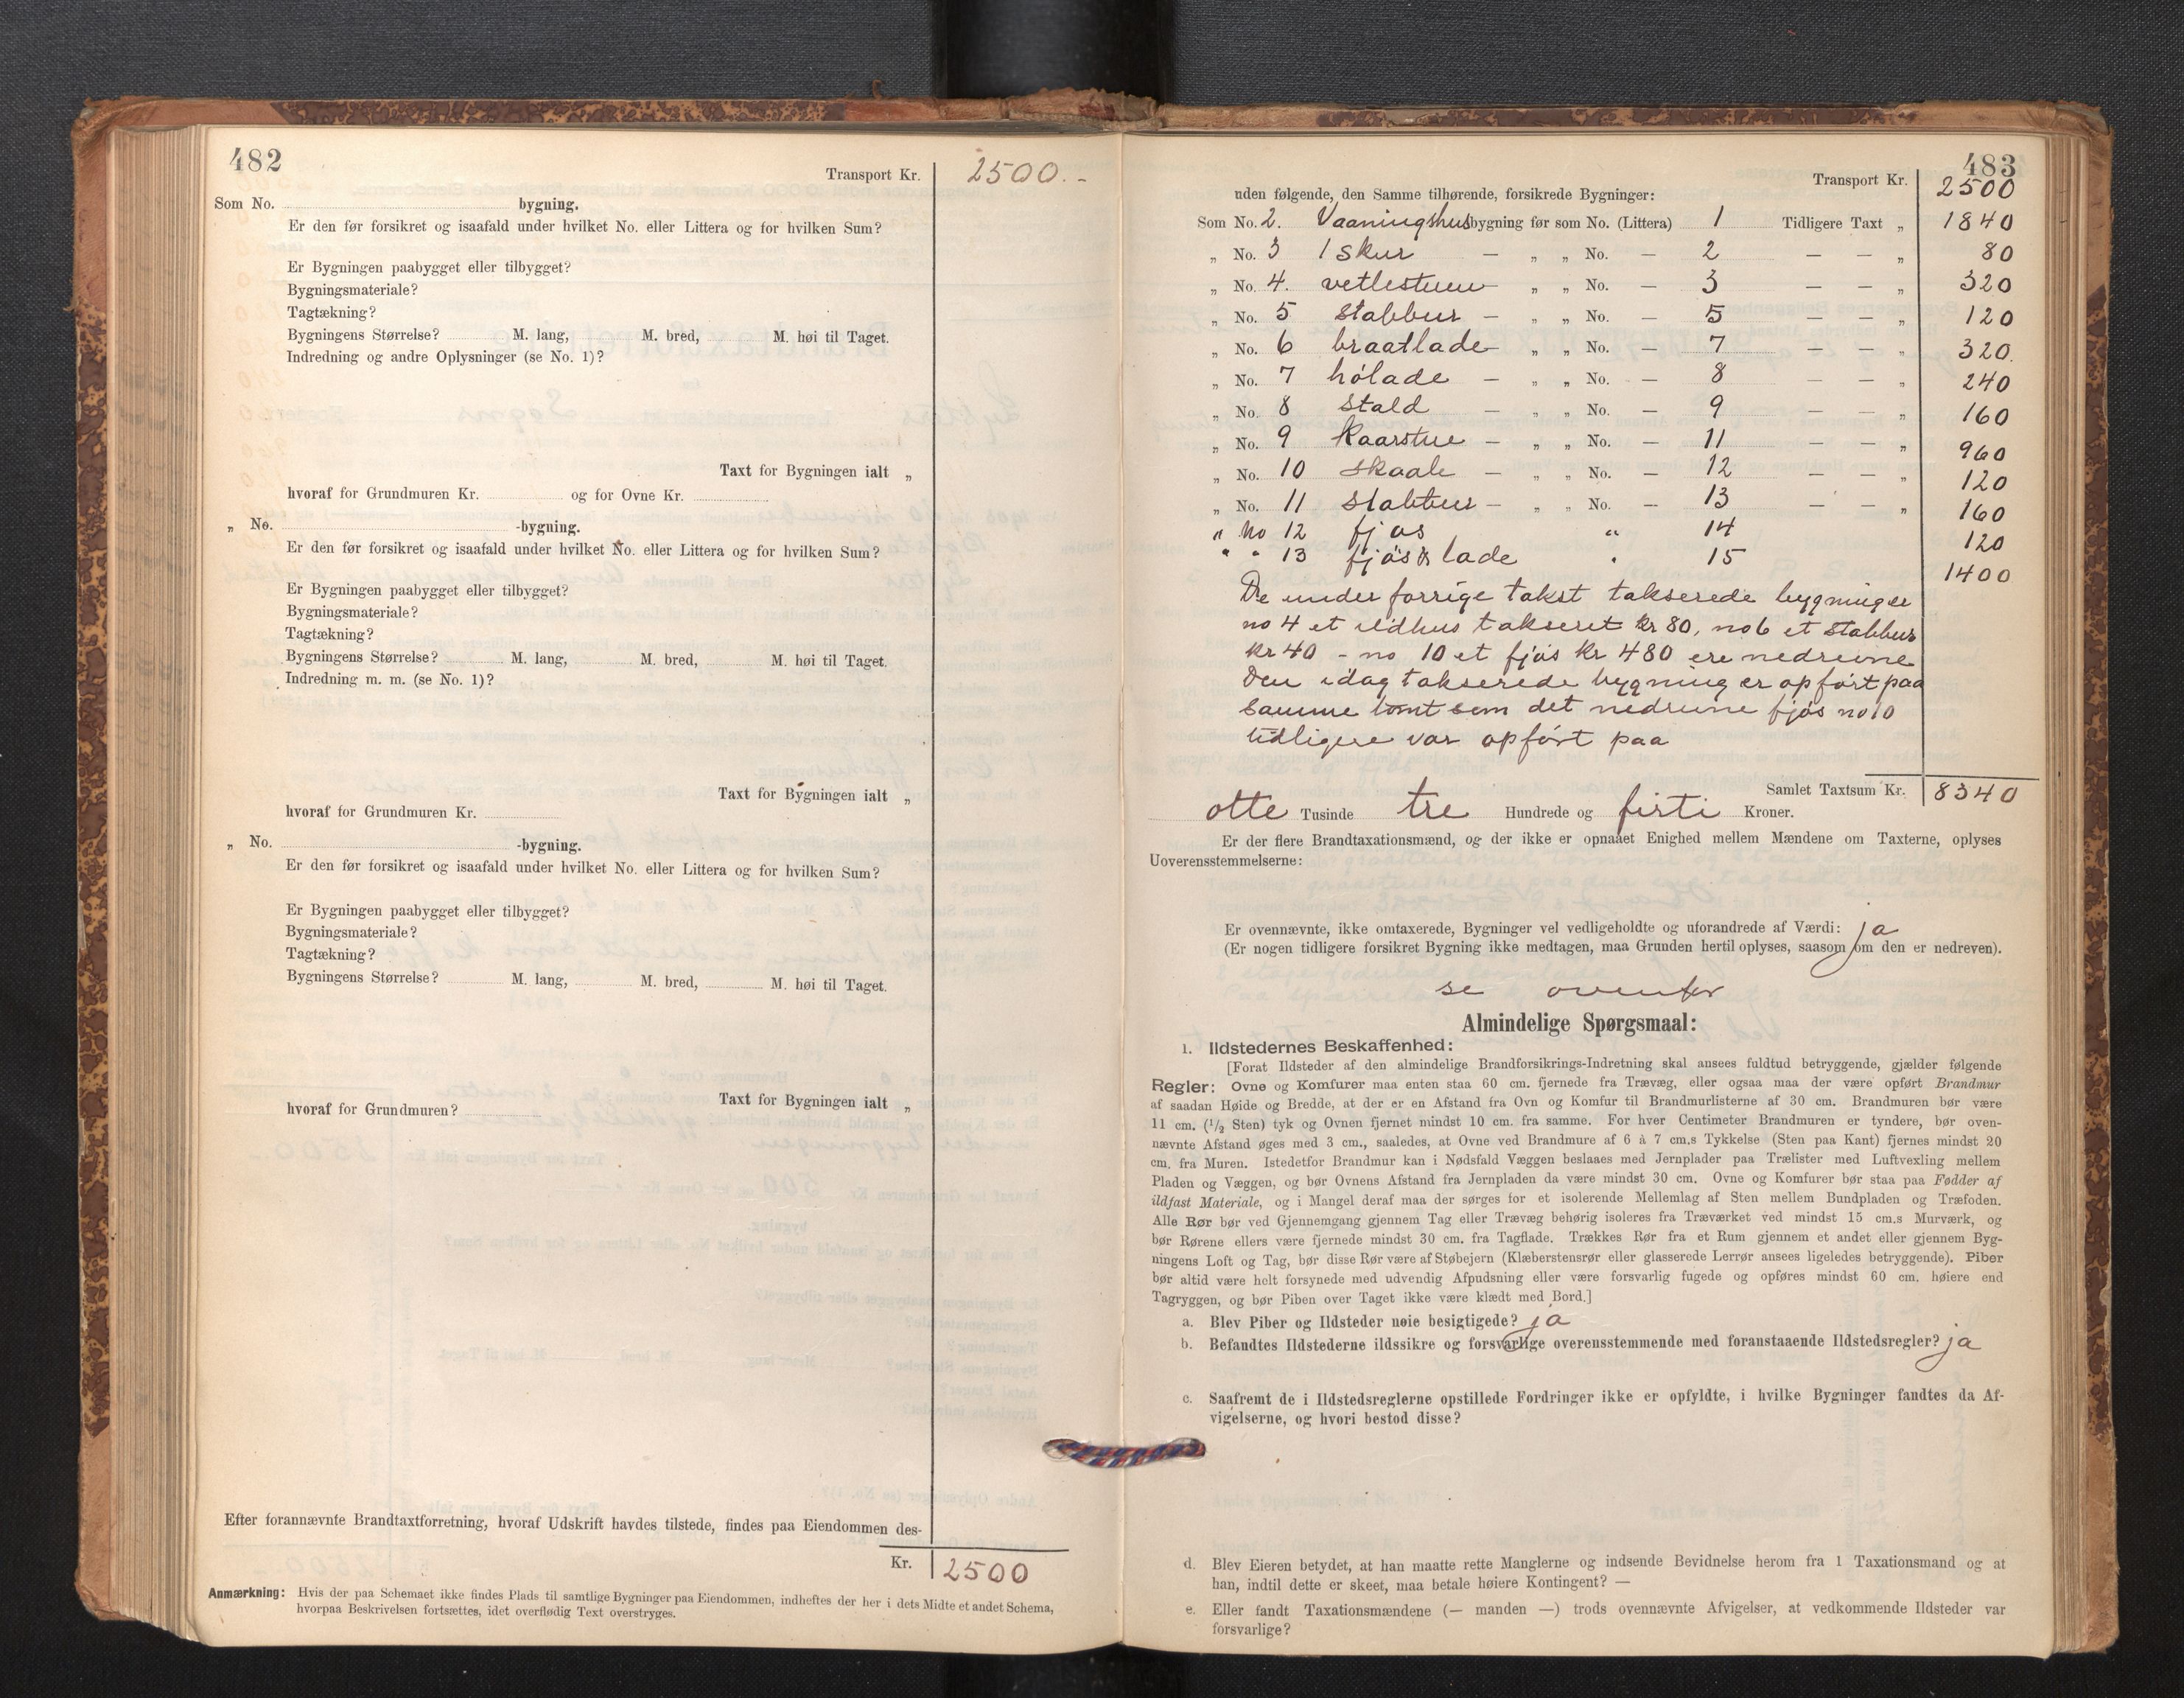 482
Transport Kr. 2500.-
Som No. bygning.
Er den før forsikret og isaafald under hvilket No. eller Littera og for hvilken Sum?
Er Bygningen paabygget eller tilbygget?
Bygningsmateriale?
Tagtækning?
Bygningens Størrelse? M. lang, M. bred, M. høi til Taget.
Indredning og andre Oplysninger (se No. 1)?
Taxt for Bygningen ialt „
hvoraf for Grundmuren Kr. og for Ovne Kr.
„ No. -bygning.
Er den før forsikret og isaafald under hvilket No. eller Littera og for hvilken Sum?
Er Bygningen paabygget eller tilbygget?
Bygningsmateriale?
Tagtækning?
Bygningens Størrelse? M. lang, M. bred, M. høi til Taget.
Indredning m. m. (se No. 1)?
Taxt for Bygningen ialt „
hvoraf for Grundmuren Kr.
„ No. -bygning.
Er den før forsikret og isaafald under hvilket No. eller Littera og for hvilken Sum?
Er Bygningen paabygget eller tilbygget?
Bygningsmateriale?
Tagtækning?
Bygningens Størrelse? M. lang, M. bred, M. høi til Taget.
Taxt for Bygningen ialt „
hvoraf for Grundmuren?
Efter forannævnte Brandtaxtforretning, hvoraf Udskrift havdes tilstede, findes paa Eiendommen des-
Kr. 2500
Anmærkning: Hvis der paa Schemaet ikke findes Plads til samtlige Bygninger paa Eiendommen, indheftes der her i dets Midte et andet Schema,
hvorpaa Beskrivelsen fortsættes, idet overflødig Text overstryges.
483
Transport Kr. 2500
uden følgende, den Samme tilhørende, forsikrede Bygninger:
Som No. 2. Vaaningshus bygning før som No. (Littera) 1 Tidligere Taxt „ 1840
„ No. 3 1 skur — „ „ No. — 2 — — „ 80
„ No. 4. vetlestuen — „ „ No. — 3 — — „ 320
„ No. 5 stabbur — „ „ No. — 5 — — „ 120
„ No. 6 braatlade — „ „ No. — 7 — — „ 320.
„ No. 7 hölade — „ „ No. — 8 — — „ 240
„ No. 8 stald — „ „ No. — 9 — — „ 160
„ No. 9 kaarstue — „ „ No. — 11 — — „ 960
„ No. 10 skaale — „ „ No. — 12 — — „ 120
„ No. 11 stabbur — „ „ No. — 13 — — „ 160
„ no 12 fjøs „ 14 120
" " 13 fjøs & lade " 15 1400
De under forrige takst takserede bygninger
no 4 et ildhus takseret kr 80, no 6 et stabbur
kr 40 - no 10 et fjös kr 480 ere nedrevne
Den idag takserede bygning er opført paa
samme tomt som det nedrevne fjös no 10
tidligere var opført paa
Samlet Taxtsum Kr. 8340
otte Tusinde tre Hundrede og firti Kroner.
Er der flere Brandtaxationsmænd, og der ikke er opnaaet Enighed mellem Mændene om Taxterne, oplyses
Uoverensstemmelserne:
Er ovennævnte, ikke omtaxerede, Bygninger vel vedligeholdte og uforandrede af Værdi: ja
(Er nogen tidligere forsikret Bygning ikke medtagen, maa Grunden hertil oplyses, saasom om den er nedreven).
se ovenfor
Almindelige Spørgsmaal:
1. Ildstedernes Beskaffenhed:
[Forat Ildsteder af den almindelige Brandforsikrings-Indretning skal ansees fuldtud betryggende, gjælder følgende
Regler: Ovne og Komfurer maa enten staa 60 cm. fjernede fra Trævæg, eller ogsaa maa der være opført Brandmur
af saadan Høide og Bredde, at der er en Afstand fra Ovn og Komfur til Brandmurlisterne af 30 cm. Brandmuren bør være
11 cm. (1/2 Sten) tyk og Ovnen fjernet mindst 10 cm. fra samme. For hver Centimeter Brandmuren er tyndere, bør oven-
nævnte Afstand øges med 3 cm., saaledes, at Ovne ved Brandmure af 6 à 7 cm.s Tykkelse (Sten paa Kant) fjernes mindst 20
cm. fra Muren. Istedetfor Brandmur kan i Nødsfald Væggen beslaaes med Jernplader paa Trælister med Luftvexling mellem
Pladen og Væggen, og bør Ovnens Afstand fra Jernpladen da være mindst 30 cm. Ovne og Komfurer bør staa paa Fødder af
ildfast Materiale, og i Mangel deraf maa der sørges for et isolerende Mellemlag af Sten mellem Bundpladen og Træfoden.
Alle Rør bør ved Gjennemgang gjennem Tag eller Trævæg behørig isoleres fra Træværket ved mindst 15 cm.s Murværk, og
bør Rørene ellers være fjernede mindst 30 cm. fra Tagflade. Trækkes Rør fra et Rum gjennem et andet eller gjennem Byg-
ningens Loft og Tag, bør disse Rør være af Støbejern (Klæberstensrør eller glasserede Lerrør ansees ligeledes betryggende). Piber
bør altid være helt forsynede med udvendig Afpudsning eller være forsvarlig fugede og opføres mindst 60 cm. høiere end
Tagryggen, og bør Piben over Taget ikke være klædt med Bord.]
a. Blev Piber og Ildsteder nøie besigtigede? ja
b. Befandtes Ildstederne ildssikre og forsvarlige overensstemmende med foranstaaende Ildstedsregler? ja
c. Saafremt de i Ildstedsreglerne opstillede Fordringer ikke er opfyldte, i hvilke Bygninger fandtes da Af-
vigelserne, og hvori bestod disse?
d. Blev Eieren betydet, at han maatte rette Manglerne og indsende Bevidnelse herom fra 1 Taxationsmand og at
han, indtil dette er skeet, maa betale høiere Kontingent? —
e. Eller fandt Taxationsmændene (— manden —) trods ovennævnte Afvigelser, at vedkommende Ildsteder var
forsvarlige?